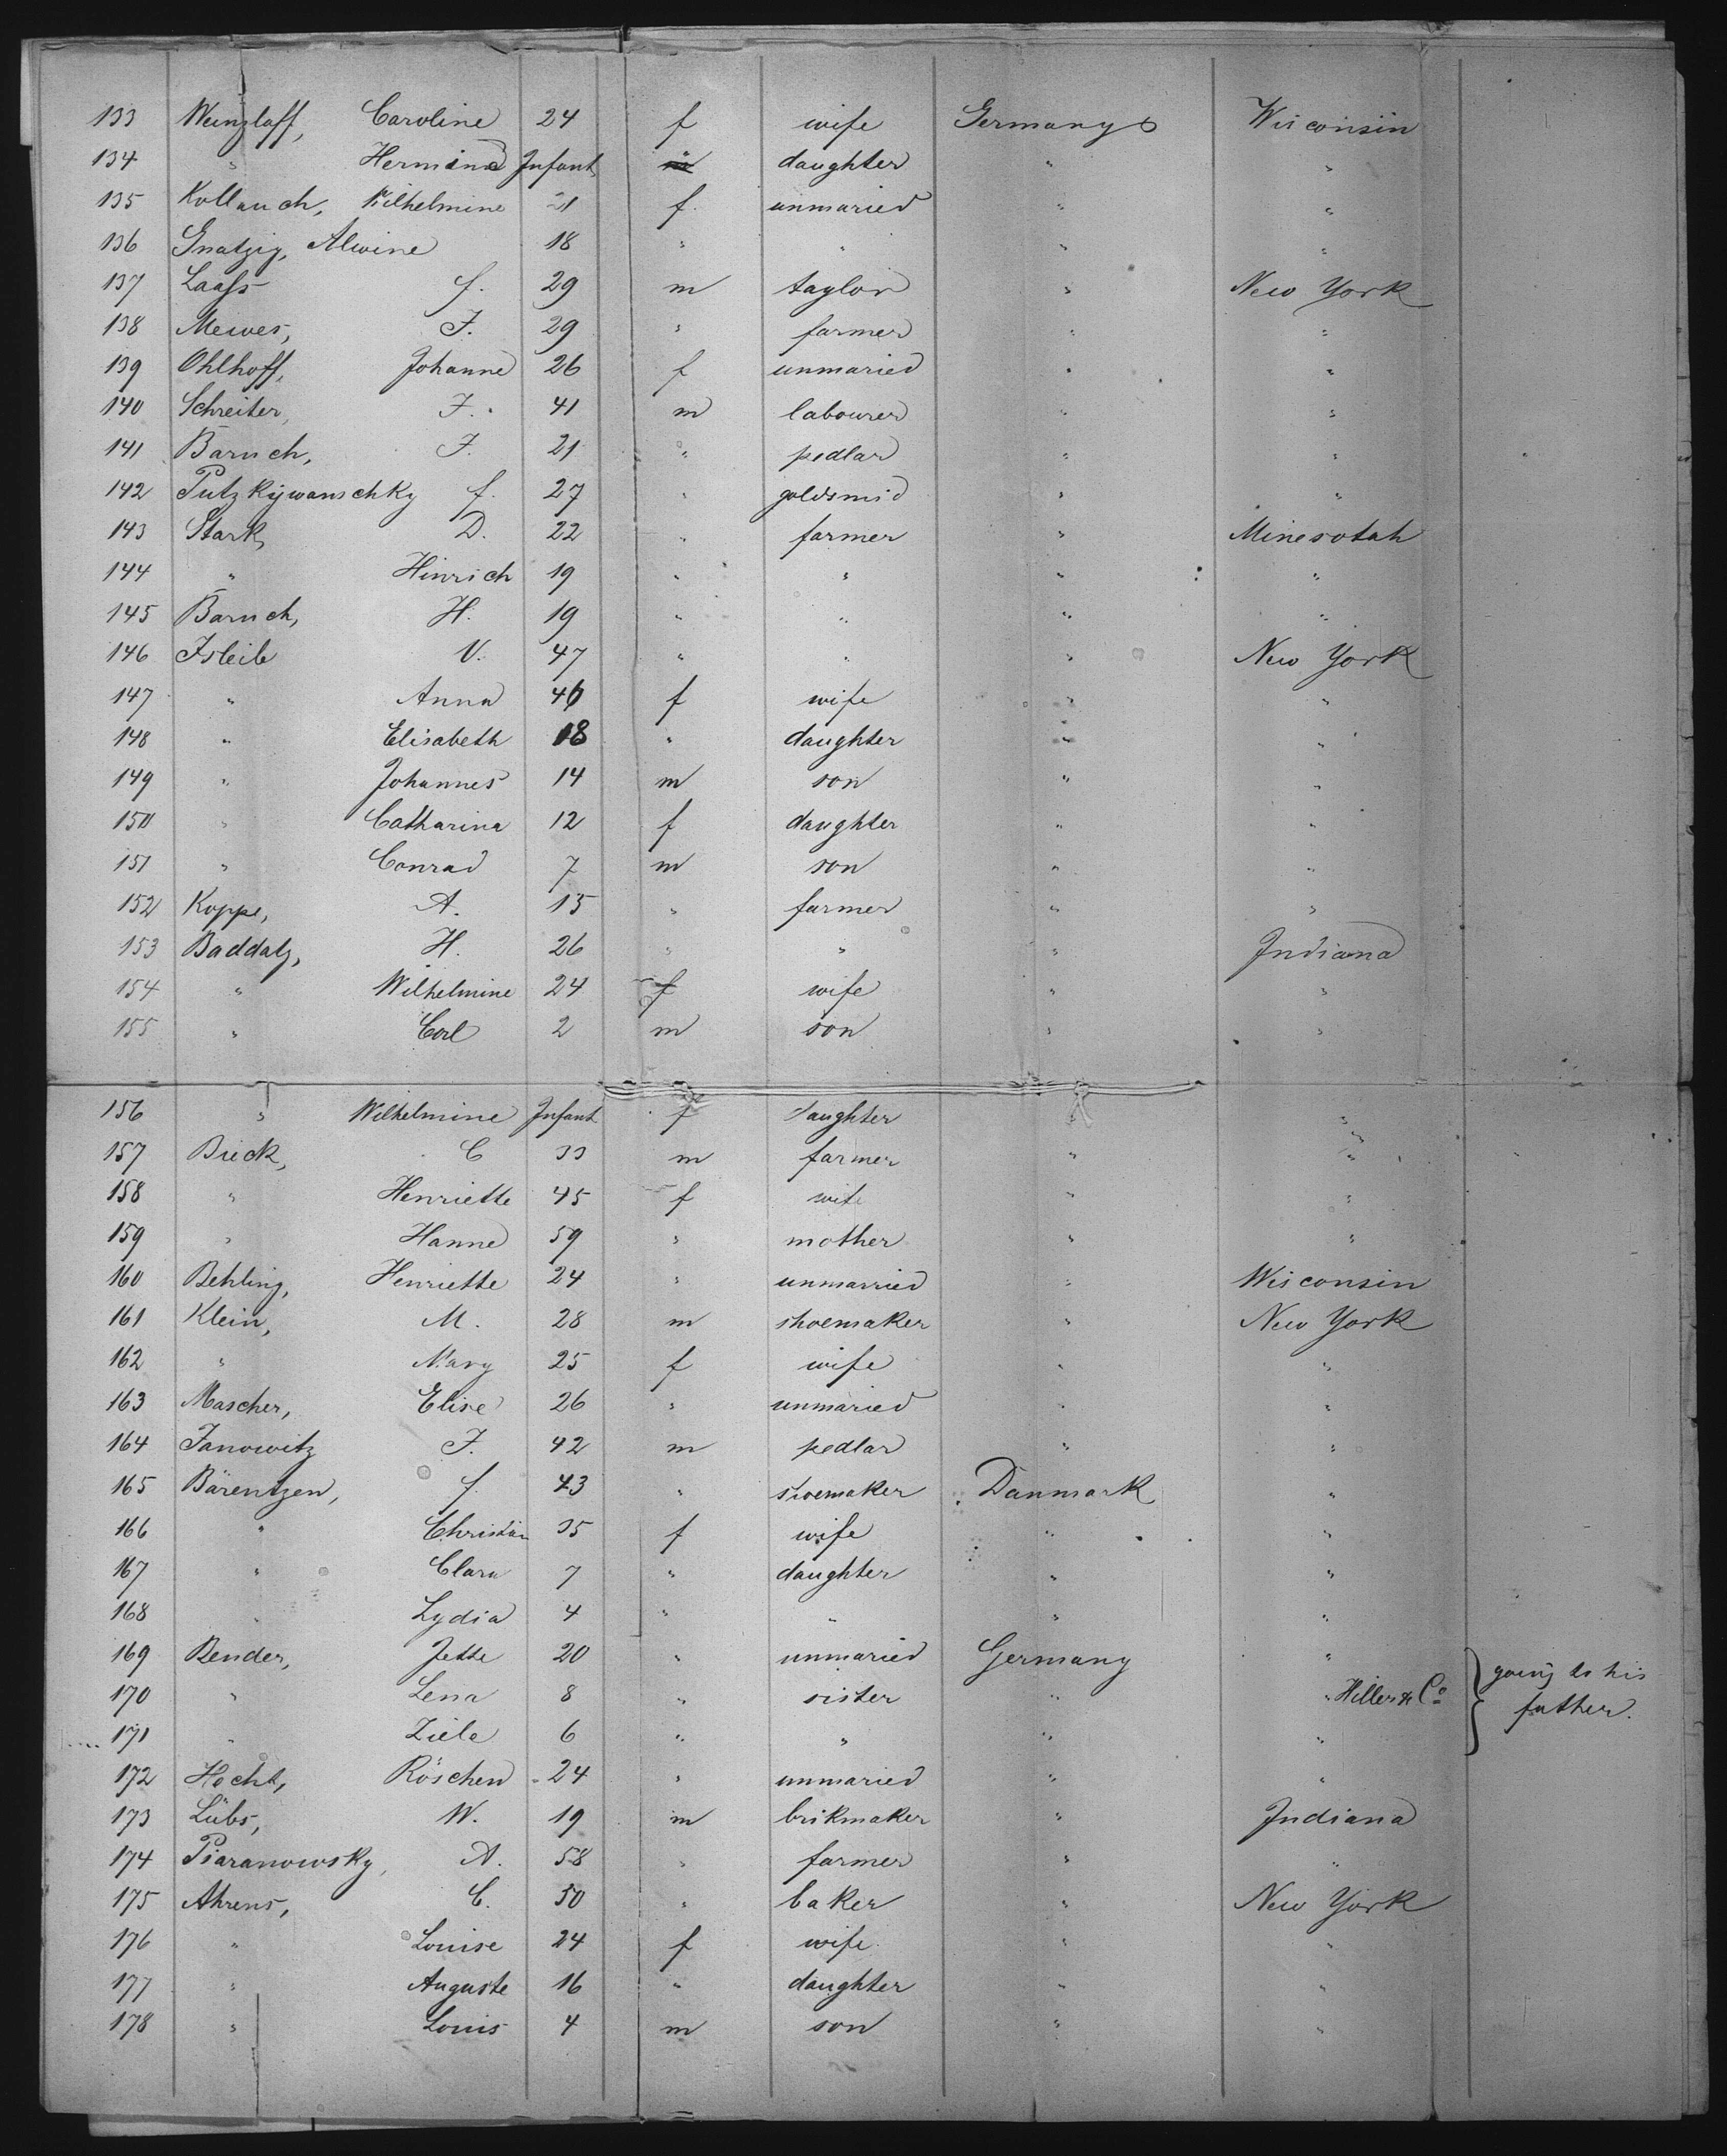 133 Wenzlaff, Caroline 24 f wife Germany Wisconsin
134 " Hermine Infant " daughter " "
135 Kollauch, Wilhelmine 21 f. unmaried " "
136 Gnatzig, Alwine 18 " " " "
137 Laass J. 29 m taylor " New York
138 Mewes, F. 29 " farmer " "
139 Ohlhoff, Johanne 26 f unmaried " "
140 Schreiter, F. 41 m labourer " "
141 Baruch, J. 21 " pedlar " "
142 Putzkywanschky J. 27 " goldsmid " "
143 Stark, D. 22 " farmer " Minesotah
144 " Hinrich 19 " " " "
145 Baruch, H. 19 " " " "
146 Isleib V. 47 " " " New York
147 " Anna 46 f wife " "
148 " Elisabeth 18 " daughter " "
149 " Johannes 14 m son " "
150 " Catharina 12 f daughter " "
151 " Conrad 7 m son " "
152 Koppe, A. 15 " farmer " "
153 Baddatz, H. 26 " " " Indiana
154 " Wilhelmine 24 f wife " "
155 " Carl 2 m son " "
156 " Wilhelmine Infant f daughter " "
157 Bieck, C 33 m farmer " "
158 " Henriette 45 f wife " "
159 " Hanne 59 " mother " "
160 Behling, Henriette 24 " unmarried " Wisconsin
161 Klein, M. 28 m shoemaker " New York
162 " Mary 25 f wife " "
163 Mascher, Elise 26 " unmaried " "
164 Janowitz J. 42 m pedlar " "
165 Bärentzen, J. 43 " shoemaker Danmark "
166 " Christian 35 f wife " "
167 " Clara 7 " daughter " "
168 " Lydia 4 " " " "
169 Bender, Jette 20 " unmaried Germany "
170 " Lena 8 " sister " " Hiller & Co going to his
171 " Ziele 6 " " " " father.
172 Hecht, Röschen 24 " unmaried " "
173 Lübs, W. 19 m brikmaker " Indiana
174 Piaranowsky, A. 58 " farmer " "
175 Ahrens, C. 50 " baker " New York
176 " Louise 24 f wife " "
177 " Auguste 16 " daughter " "
178 " Louis 4 m son " "